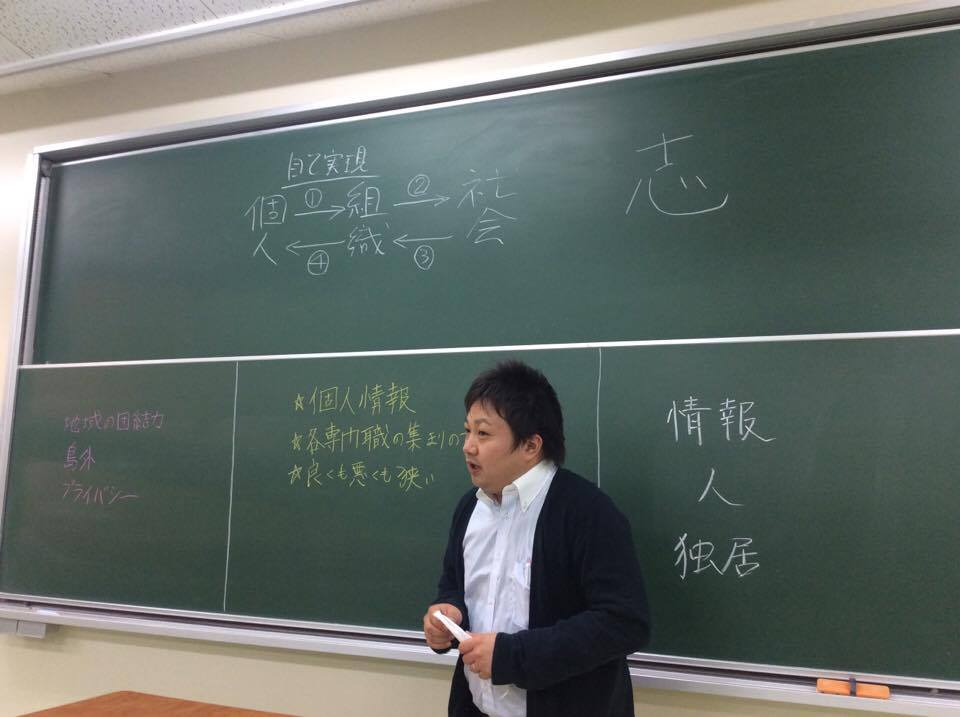 自己実現
個人 ① → 組織 ② → 社会
④ ← ③ ←
志
地域の団結力
島外
プライバシー
☆個人情報
☆各専門職の集まりの
☆良くも悪くも狭い
情報
人
独居